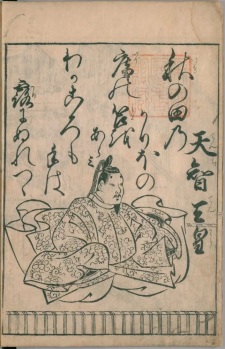 天智天皇
秋の田乃
かりほの
庵の苫越
あらみ
わかころも
手は
露にぬれつゝ